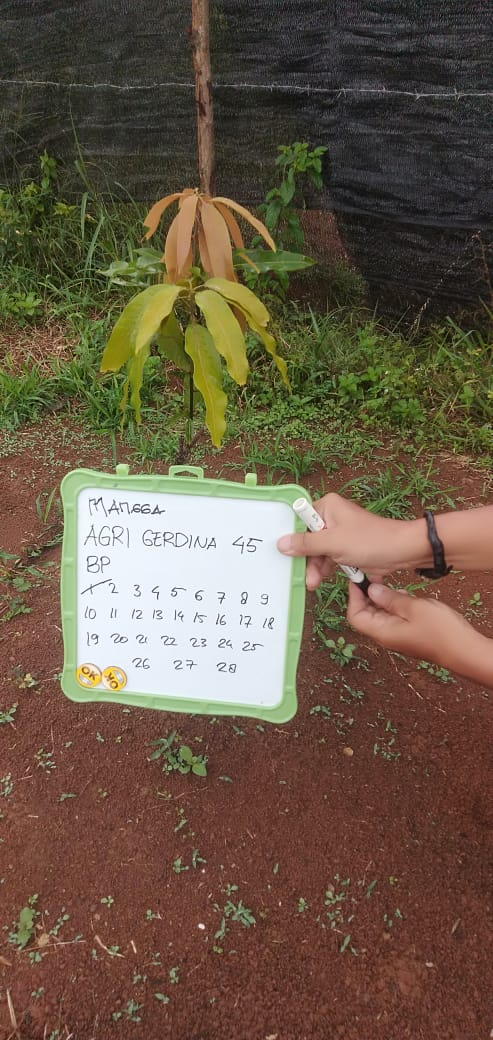 MANGGA
AGRI GERDINA 45
BP
1 2 3 4 5 6 7 8 9
10 11 12 13 14 15 16 17 18
19 20 21 22 23 24 25
26 27 28
OK OK